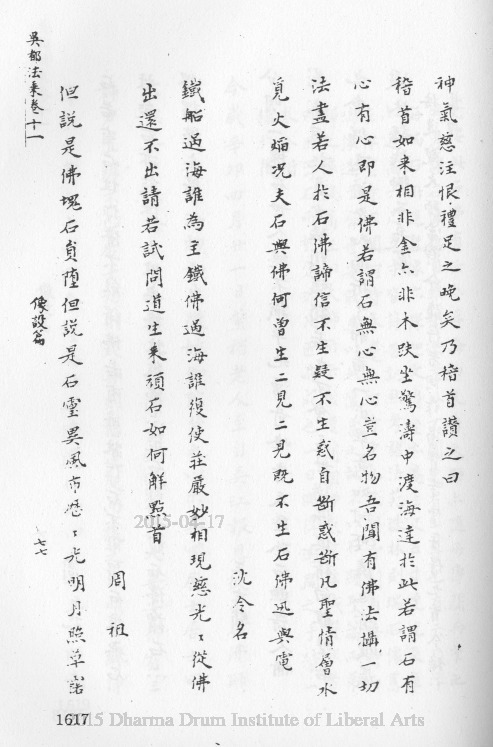 神氣慈注恨禮足之晚矣乃稽首讚之曰
稽首如来相非金亦非木趺坐驚濤中渡海達於此若謂石有
心有心即是佛若謂石無心無心豈名物吾聞有佛法攝一切
法盡若人於石佛諦信不生疑不生惑自斷惑斷凡聖情層水
覓火焔况夫石與佛何曽生二見二見既不生石佛迅與電
沈令名
鐵船過海誰為主鐵佛過海誰復使莊嚴妙相現慈光〻從佛
出還不出請若試問道生来頑石如何解點首
周祖
但説是佛塊石負墮但説是石靈異風市歴〻光明月照草窑
吴都法乗卷十一
像設篇
七七
2015-04-17
1617
15 Dharma Drum Institute of Liberal Arts